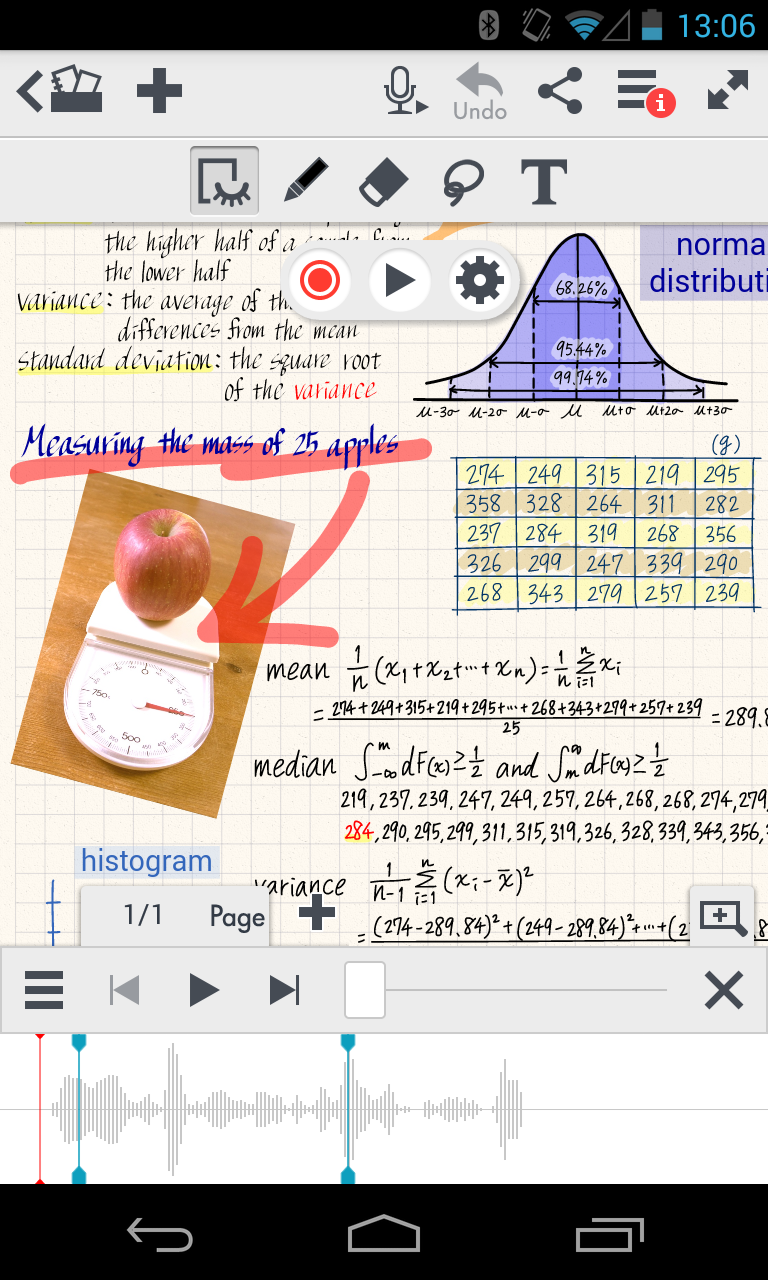 13:06
Undo
T
the higher half of a sample from
the lower half
variance: the average of th
differences from the mean
standard deviation: the square root
of the variance
norma
distributi
68.26%
95.44%
99.74%
μ-3σ μ-2σ μ-σ μ μ+σ μ+2σ μ+3σ
Measuring the mass of 25 apples
(g)
274 249 315 219 295
358 328 264 311 282
237 284 319 268 356
326 299 247 339 290
268 343 279 257 239
0
750
250
500
mean 1/n (x₁+x₂+…+xn)=1/n Σ i=1 n xi
= 274+249+315+219+295+…+268+343+279+257+239 / 25 = 289.8
median ∫-∞ m dF(x)≥1/2 and ∫m ∞ dF(x)≥1/2
219, 237, 239, 247, 249, 257, 264, 268, 268, 274, 279
284, 290, 295, 299, 311, 315, 319, 326, 328, 339, 343, 356,
histogram
variance 1/n-1 Σ i=1 n (xi - x̄)²
= (274-289.84)²+(249-289.84)²+…+(2
1/1 Page